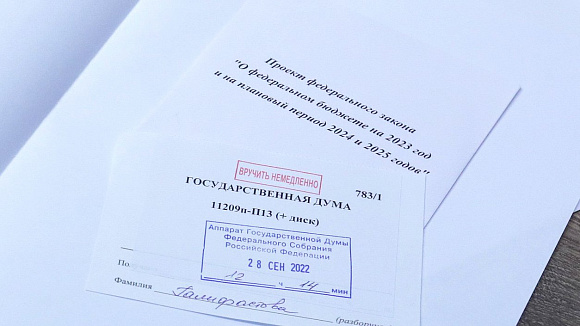 Проект федерального закона
"О федеральном бюджете на 2023 год
и на плановый период 2024 и 2025 годов"
ВРУЧИТЬ НЕМЕДЛЕННО
783/1
ГОСУДАРСТВЕННАЯ ДУМА
11209п-П13 (+ диск)
Аппарат Государственной Думы
Федерального Собрания
Российской Федерации
28 СЕН 2022
12 ч 14 мин
По
Фамилия
(разбор